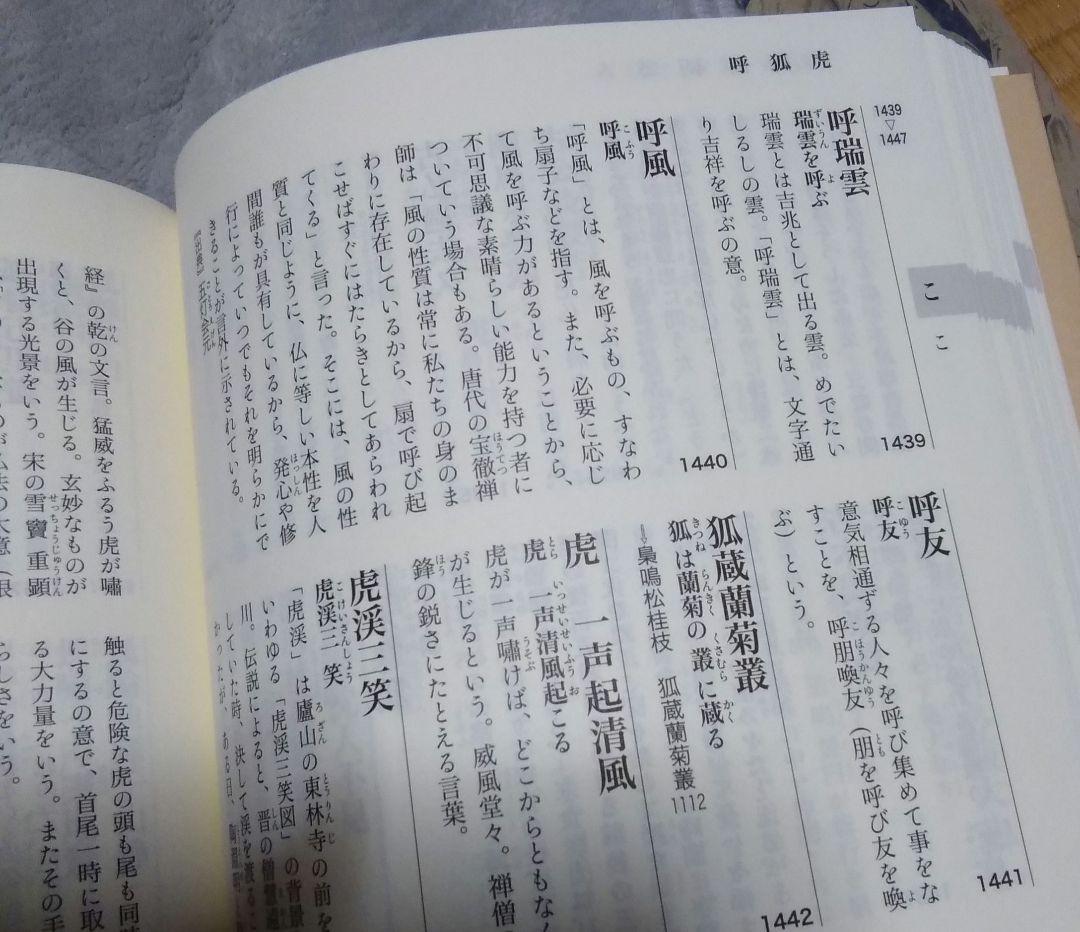 呼 狐 虎
1439
▽
1447
こ
こ
呼瑞雲
瑞雲を呼ぶ
ずいうん よ
瑞雲とは吉兆として出る雲。めでたい
しるしの雲。「呼瑞雲」とは、文字通
り吉祥を呼ぶの意。
1439
呼風
呼風
こふう
「呼風」とは、風を呼ぶもの、すなわ
ち扇子などを指す。また、必要に応じ
て風を呼ぶ力があるということから、
不可思議な素晴らしい能力を持つ者に
ついていう場合もある。唐代の宝徹禅
ほうてつ
師は「風の性質は常に私たちの身のま
わりに存在しているから、扇で呼び起
こせばすぐにはたらきとしてあらわれ
てくる」と言った。そこには、風の性
質と同じように、仏に等しい本性を人
間誰もが具有しているから、発心や修
ほっしん
行によっていつでもそれを明らかにで
きることが言外に示されている。
1440
呼友
呼友
こゆう
意気相通ずる人々を呼び集めて事をな
すことを、呼朋喚友（朋を呼び友を喚
こほうかんゆう とも よ
ぶ）という。
1441
狐蔵蘭菊叢
狐は蘭菊の叢に蔵る
きつね らんぎく くさむら かく
⇒梟鳴松桂枝 狐蔵蘭菊叢
1112
1442
虎一声起清風
虎一声清風起こる
とら いっせいせいふうお
虎が一声嘯けば、どこからともなく
うそぶ
が生じるという。威風堂々。禅僧
鋒の鋭さにたとえる言葉。
ほう
虎渓三笑
虎渓三笑
こけいさんしょう
「虎渓」は廬山の東林寺の前を
ろざん とうりんじ
川。伝説によると、晋の僧慧遠
しん
いわゆる「虎渓三笑図」の背景
していた時、決して渓を渡るこ
かったが、ある日、
経』の乾の文言。猛威をふるう虎が嘯
けん
くと、谷の風が生じる。玄妙なものが
出現する光景をいう。宋の雪竇重顕
せっちょうじゅうけん
触ると危険な虎の頭も尾も同
にするの意で、首尾一時に取
る大力量をいう。またその手
らしさをいう。